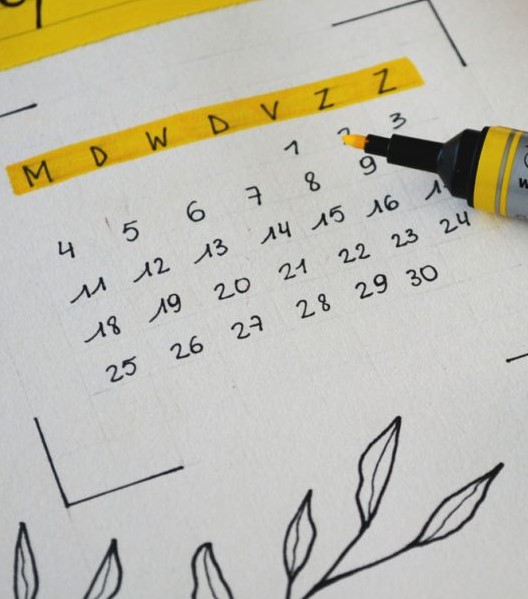 M D W D V Z Z
1 2 3
4 5 6 7 8 9
11 12 13 14 15 16
18 19 20 21 22 23 24
25 26 27 28 29 30